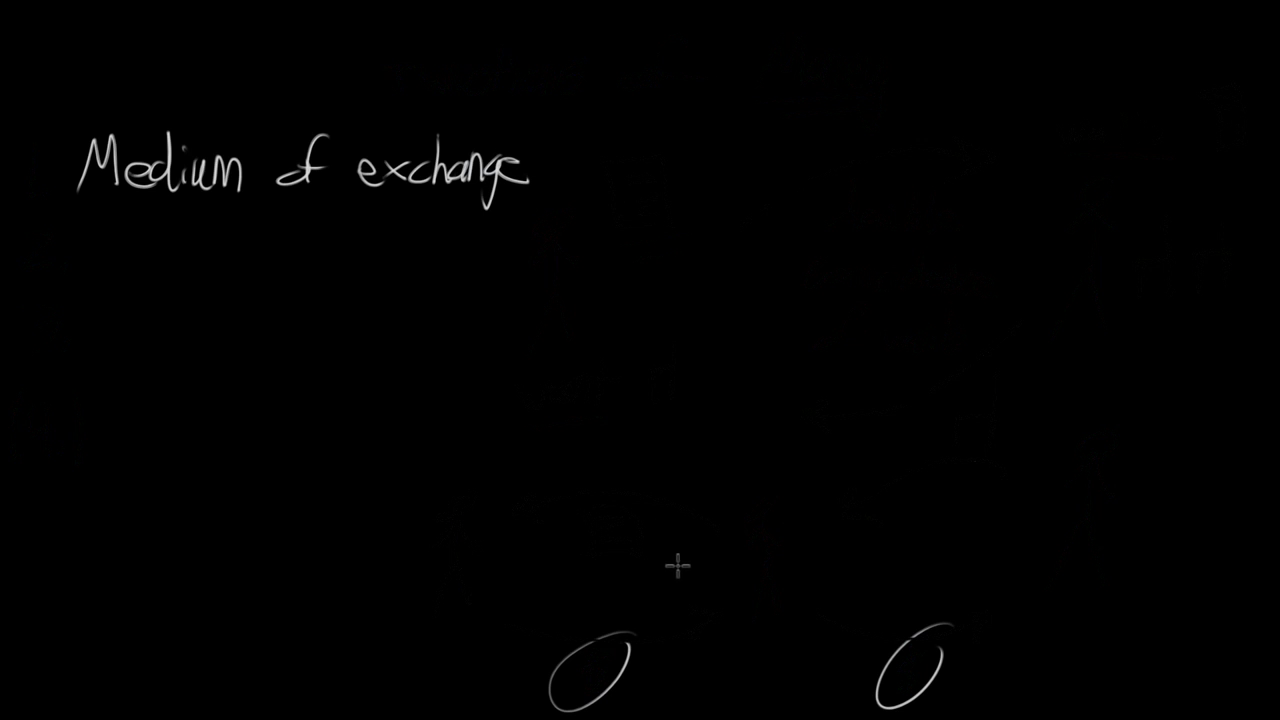 Medium of exchange